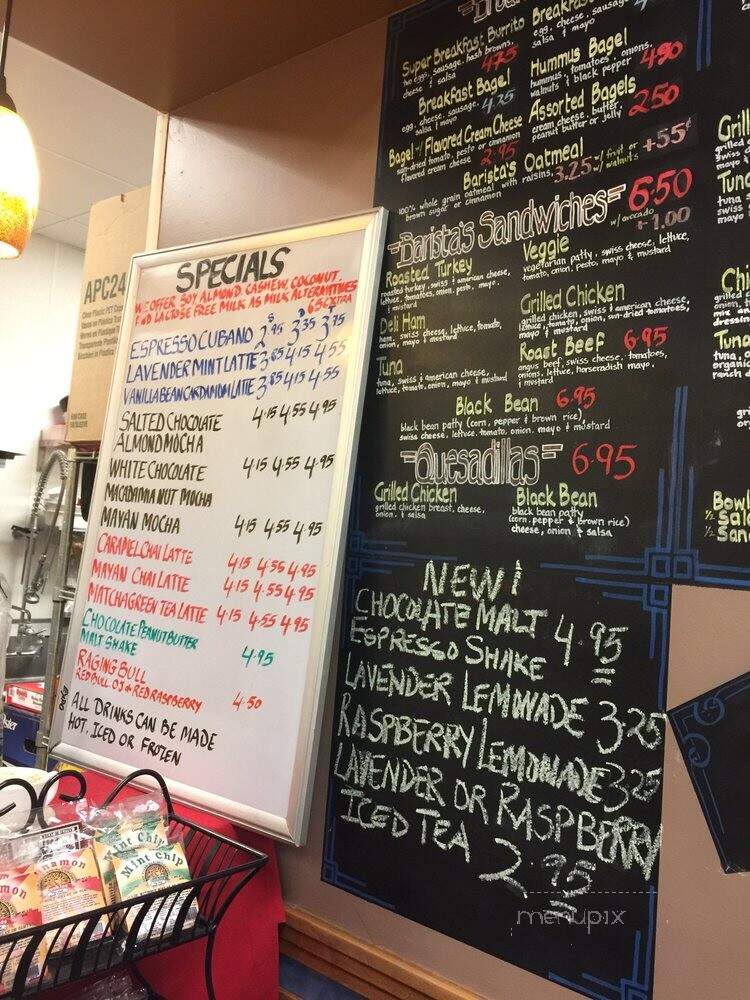 SPECIALS
WE OFFER SOY, ALMOND, CASHEW, COCONUT,
AND LACTOSE FREE MILK AS MILK ALTERNATIVES
65¢ EXTRA
ESPRESSO CUBANO 2.95 3.35 3.75
LAVENDER MINT LATTE 3.85 4.15 4.55
VANILLA BEAN CARDAMOM LATTE 3.85 4.15 4.55
SALTED CHOCOLATE 4.15 4.55 4.95
ALMOND MOCHA
WHITE CHOCOLATE 4.15 4.55 4.95
MACADAMIA NUT MOCHA
MAYAN MOCHA 4.15 4.55 4.95
CARAMEL CHAI LATTE 4.15 4.55 4.95
MAYAN CHAI LATTE 4.15 4.55 4.95
MATCHA GREEN TEA LATTE 4.15 4.55 4.95
CHOCOLATE PEANUT BUTTER
MALT SHAKE 4.95
RAGING BULL
RED BULL, OJ & RED RASPBERRY 4.50
ALL DRINKS CAN BE MADE
HOT, ICED OR FROZEN
APC24
Super Breakfast Burrito
two eggs, sausage, hash browns,
cheese & salsa 4.75
Breakfast Bagel
egg, cheese, sausage, 4.25
salsa & mayo
Bagel w/ Flavored Cream Cheese
sun-dried tomato, pesto or cinnamon
flavored cream cheese 2.95
egg, cheese, sausage
salsa & mayo
Hummus Bagel 4.90
hummus, tomatoes, onions,
walnuts & black pepper
Assorted Bagels 2.50
cream cheese, butter,
peanut butter or jelly
Barista's Oatmeal 3.25 w/ fruit or walnuts +55¢
100% whole grain oatmeal with raisins,
brown sugar or cinnamon
Barista's Sandwiches 6.50
w/ avocado +1.00
Roasted Turkey
roasted turkey, swiss & american cheese,
lettuce, tomatoes, onion, pesto, mayo,
Deli Ham
ham, swiss cheese, lettuce, tomato,
onion, mayo & mustard
Tuna
tuna, swiss & american cheese,
lettuce, tomato, onion, mayo & mustard
Veggie
vegetarian patty, swiss cheese, lettuce,
tomato, onion, pesto, mayo & mustard
Grilled Chicken
grilled chicken, swiss & american cheese,
lettuce, tomato, onion, sun-dried tomatoes,
mayo & mustard
Roast Beef 6.95
angus beef, swiss cheese, tomatoes,
onions, lettuce, horseradish mayo,
& mustard
Black Bean 6.95
black bean patty (corn, pepper & brown rice),
swiss cheese, lettuce, tomato, onion, mayo & mustard
Quesadillas 6.95
Grilled Chicken
grilled chicken breast, cheese,
onion, & salsa
Black Bean
black bean patty
(corn, pepper & brown rice)
cheese, onion & salsa
NEW!
CHOCOLATE MALT
ESPRESSO SHAKE 4.95
LAVENDER LEMONADE 3.25
RASPBERRY LEMONADE 3.25
LAVENDER OR RASPBERRY
ICED TEA 2.95
Mint Chip
Mint Chip
menupix